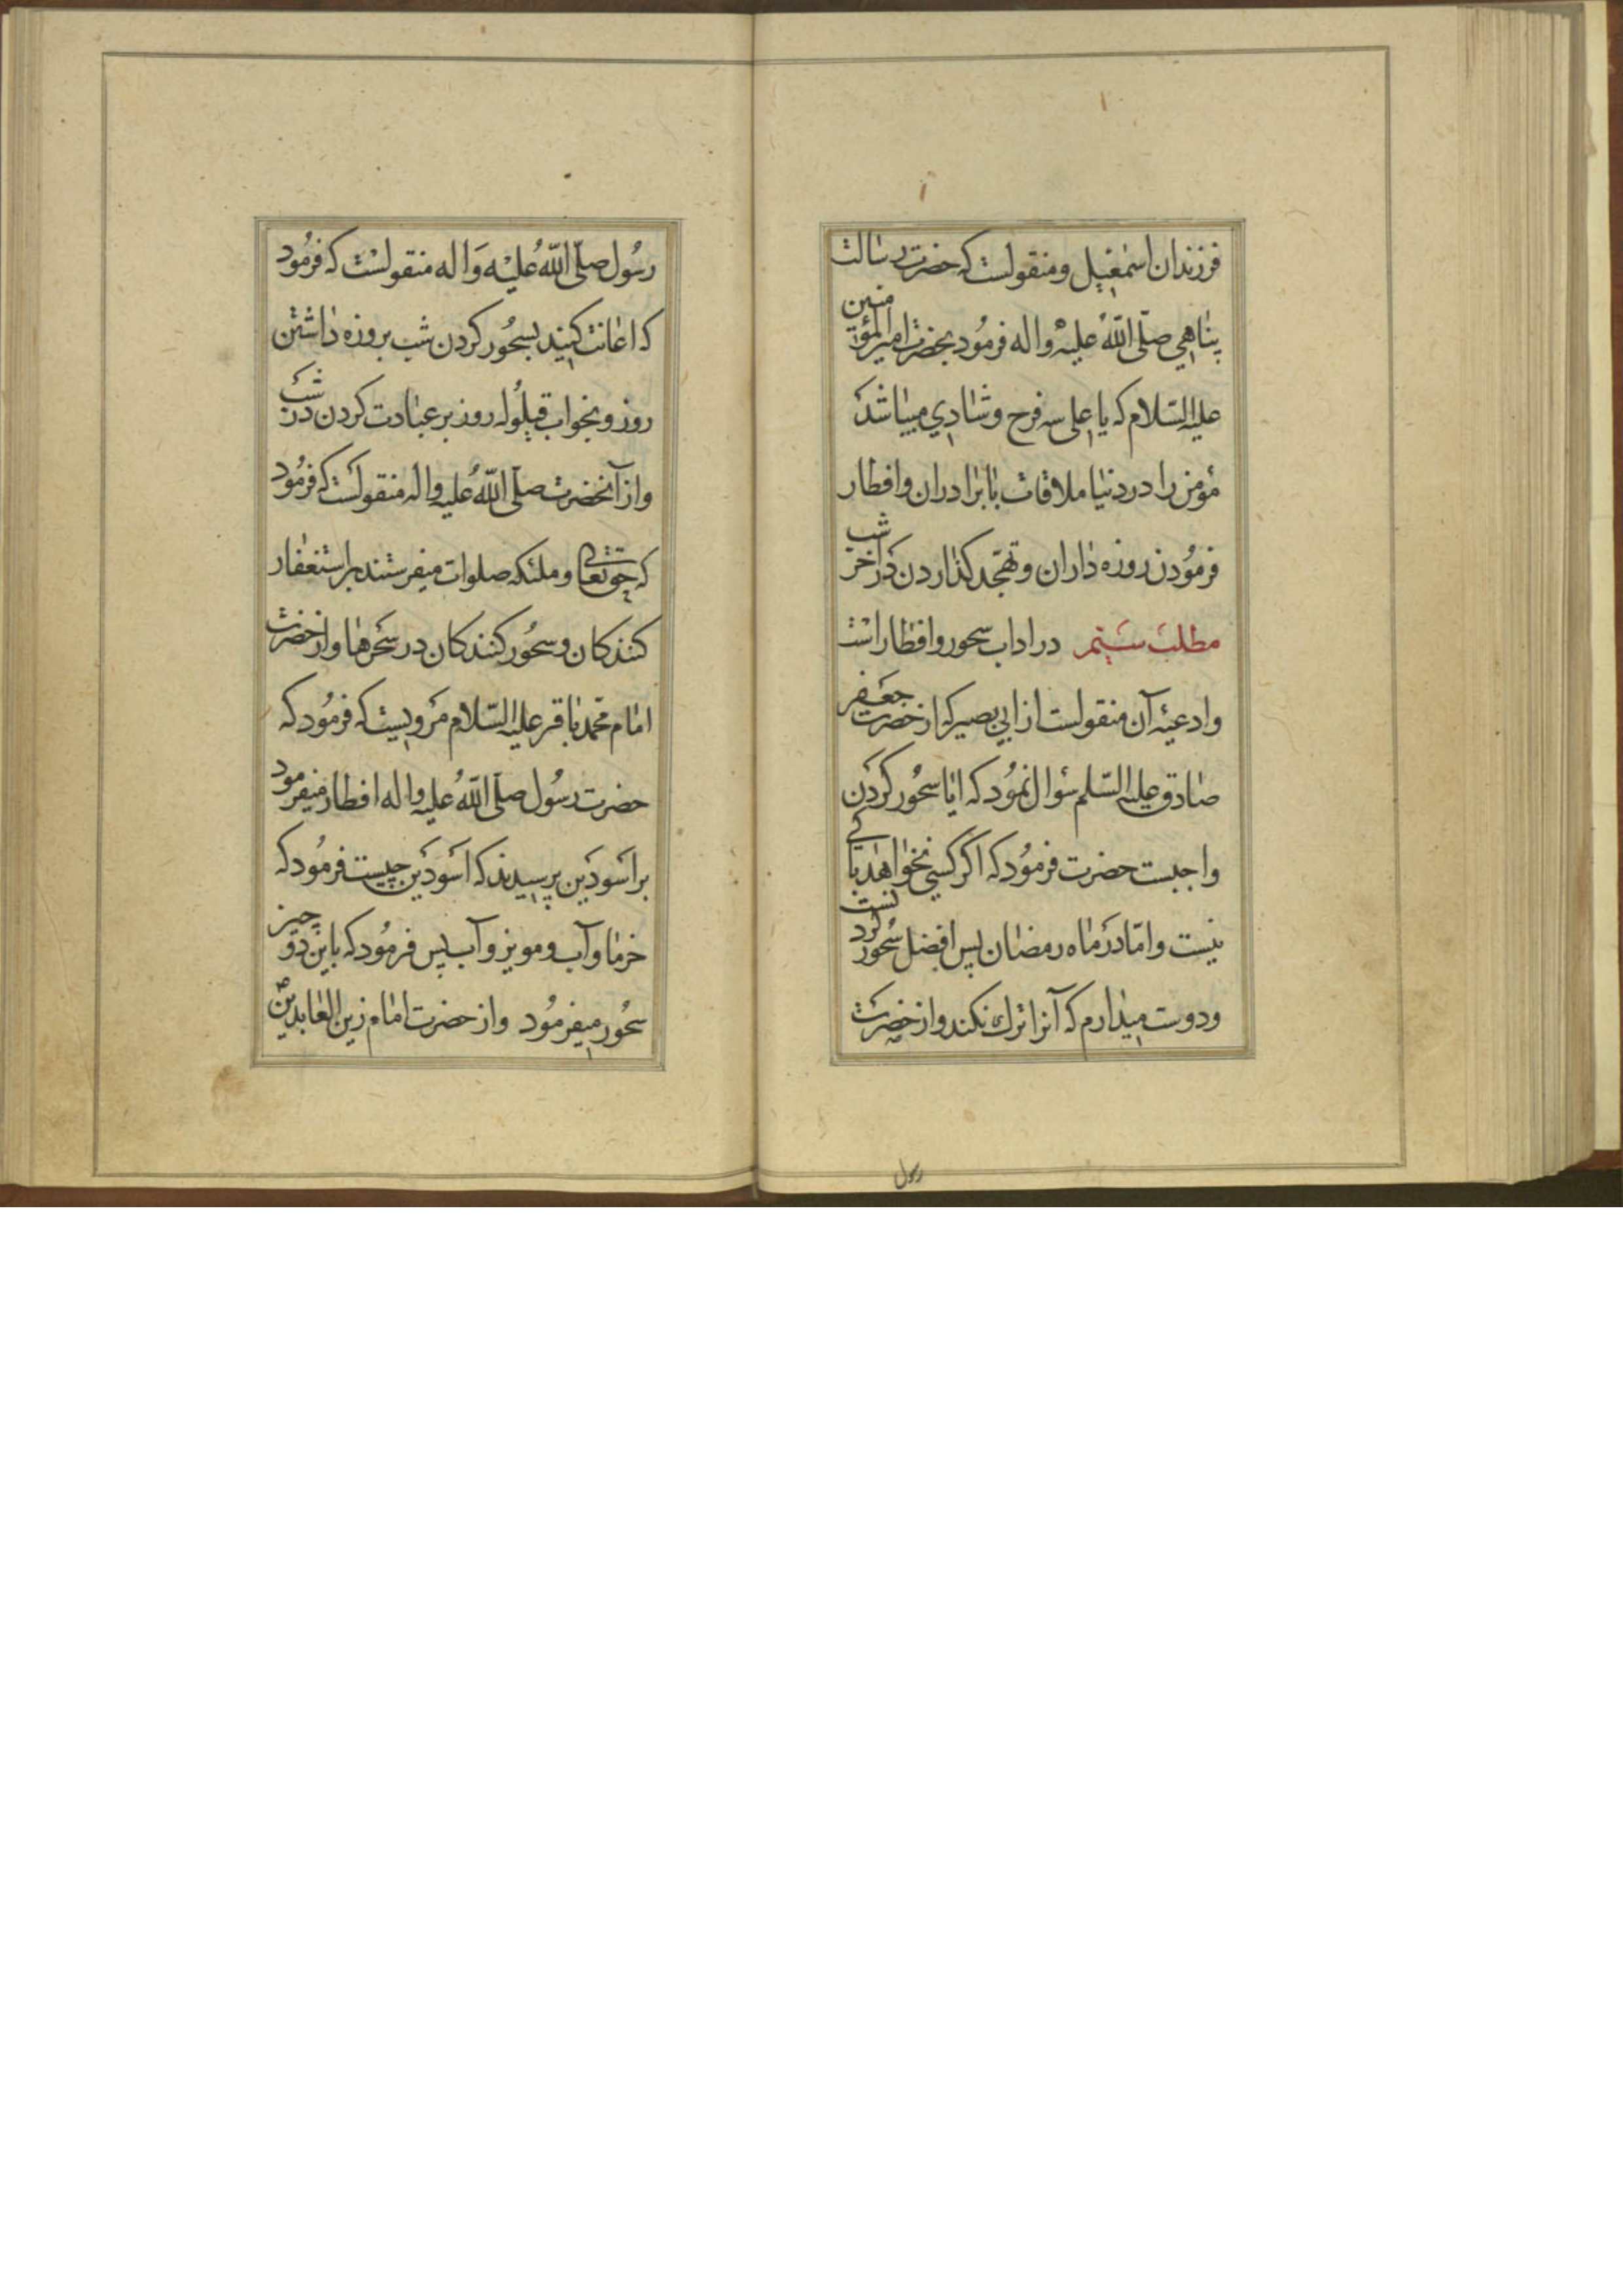 فرزندان اسمعیل و منقولست که حضرت رسالت
پناهی صلّی اللّه علیه واله فرمُود بحضرت امیرالمؤمنین
علیه السّلام که یا علی سه فرح و شادی میباشد
مؤمن را در دنیا ملاقات با برادران وافطار
فرمُودن روزه داران و تهجّد کذاردن در آخر شب
مطلب سیّم در اداب سحور وافطار است
وادعیۀ آن منقولست از ابی بصیر که از حضرت جعفر
صادق علیه السّلم سُوال نمُود که ایا سحُور کردن
واجبست حضرت فرمُود که اکر کسی نخواهد باکی
نیست وامّا در ماه رمضان پس افضل سُحور کردنست
و دوست میدارم که آنرا ترک نکند واز حضرت
رسول
رسُول صلّی اللّهُ علیْه وَاله منقولسْت که فرمُود
که اعانت کنید بسحُور کردن شب بروزه داشتن
روز و بخواب قیلُوله روز بر عبادت کردن در شب
واز آنحضرت صلّی اللّهُ علیه واله منقولست که فرمُود
که حقتعالی و ملئکه صلوات میفرستند بر استغفار
کنندکان و سحُور کنندکان در سَحَرها واز حضرت
امام محمّد باقر علیه السّلام مَرویست که فرمُود که
حضرت رسُول صلّی اللّهُ علیه واله افطار میفرمود
بر اَسْوَدَین پرسیدند که اَسْوَدَین چیست فرمُود که
خرما وآب و مویز وآب پس فرمُود که باین دو چیز
سحُور میفرمُود واز حضرت امام زین العابدین ع